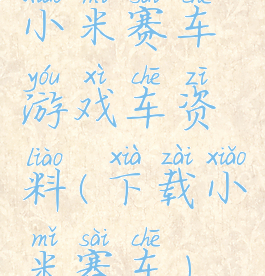 xiǎo mǐ sài chē
小米赛车
yóu xì chē zī
游戏车资
liào xià zài xiǎo
料(下载小
mǐ sài chē
米赛车)